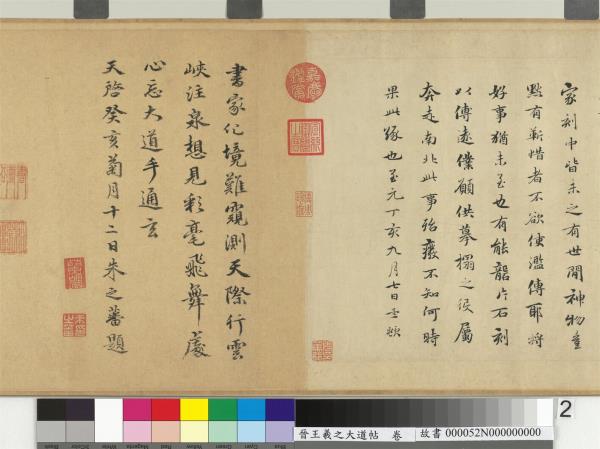 家刻中皆未之有世間神物豈
默有靳惜者不欲使濫傳耶将
好事猶未至也有能礱片石刻
以傳遠僕願供摹搨之役屬
奔走南北此事殆廢不知何時
果此緣也至元丁亥九月七日孟頫
書家化境難窺測天際行雲
峽注泉想見彩毫飛舞處
心忘大道手通玄
天啓癸亥菊月十二日朱之蕃題
2
晉王羲之大道帖 卷
故書 000052N000000000